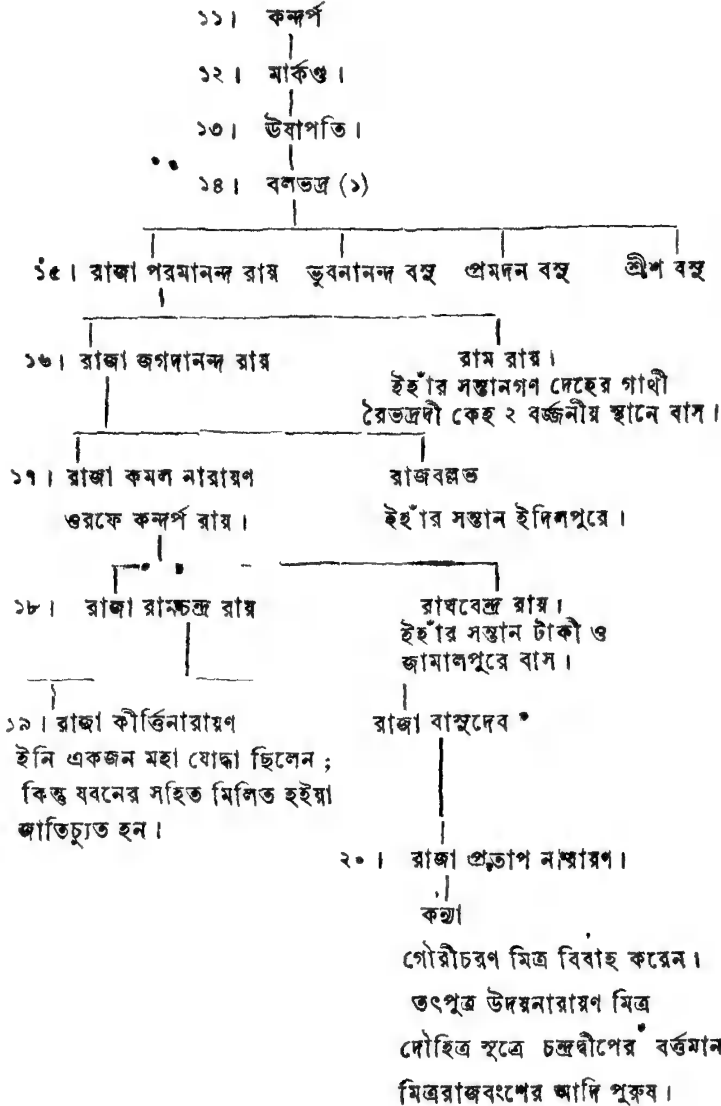 ১১। কন্দর্প
১২। মার্কণ্ড।
১৩। ঊষাপতি।
১৪। বলভদ্র (১)
১৫। রাজা পরমানন্দ রায় ভুবনানন্দ বসু প্রমদন বসু শ্রীশ বসু
১৬। রাজা জগদানন্দ রায় রাম রায়।
ইহাঁর সন্তানগণ দেহের গাথী
রৈভদ্রদী কেহ ২ বর্জ্জনীয় স্থানে বাস।
১৭। রাজা কমল নারায়ণ রাজবল্লভ
ওরফে কন্দর্প রায়। ইহাঁর সন্তান ইদিলপুরে।
১৮। রাজা রামচন্দ্র রায় রাঘবেন্দ্র রায়।
ইহাঁর সন্তান টাকী ও
জামালপুরে বাস।
১৯। রাজা কীর্ত্তিনারায়ণ রাজা বাসুদেব
ইনি একজন মহা যোদ্ধা ছিলেন;
কিন্তু যবনের সহিত মিলিত হইয়া
জাতিচ্যুত হন।
২০। রাজা প্রতাপ নারায়ণ।
কন্যা
গৌরীচরণ মিত্র বিবাহ করেন।
তৎপুত্র উদয়নারায়ণ মিত্র
দৌহিত্র সূত্রে চন্দ্রদ্বীপের বর্ত্তমান
মিত্ররাজবংশের আদি পুরুষ।